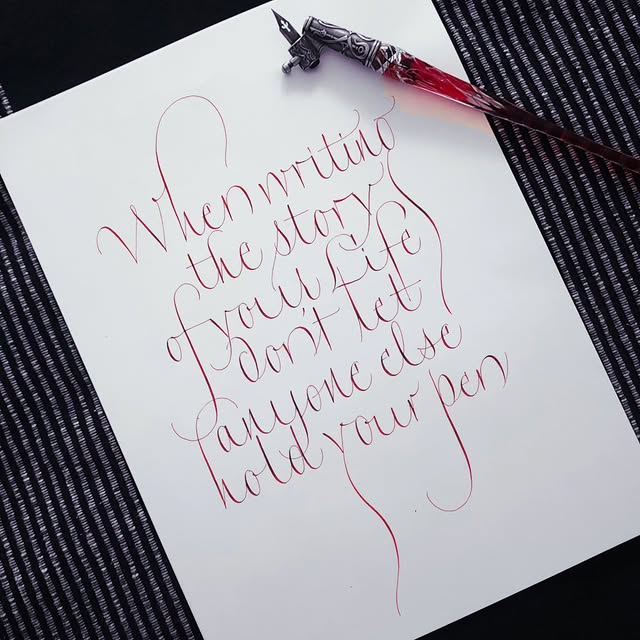 When writing
the story
of your Life
don't let
anyone else
hold your pen